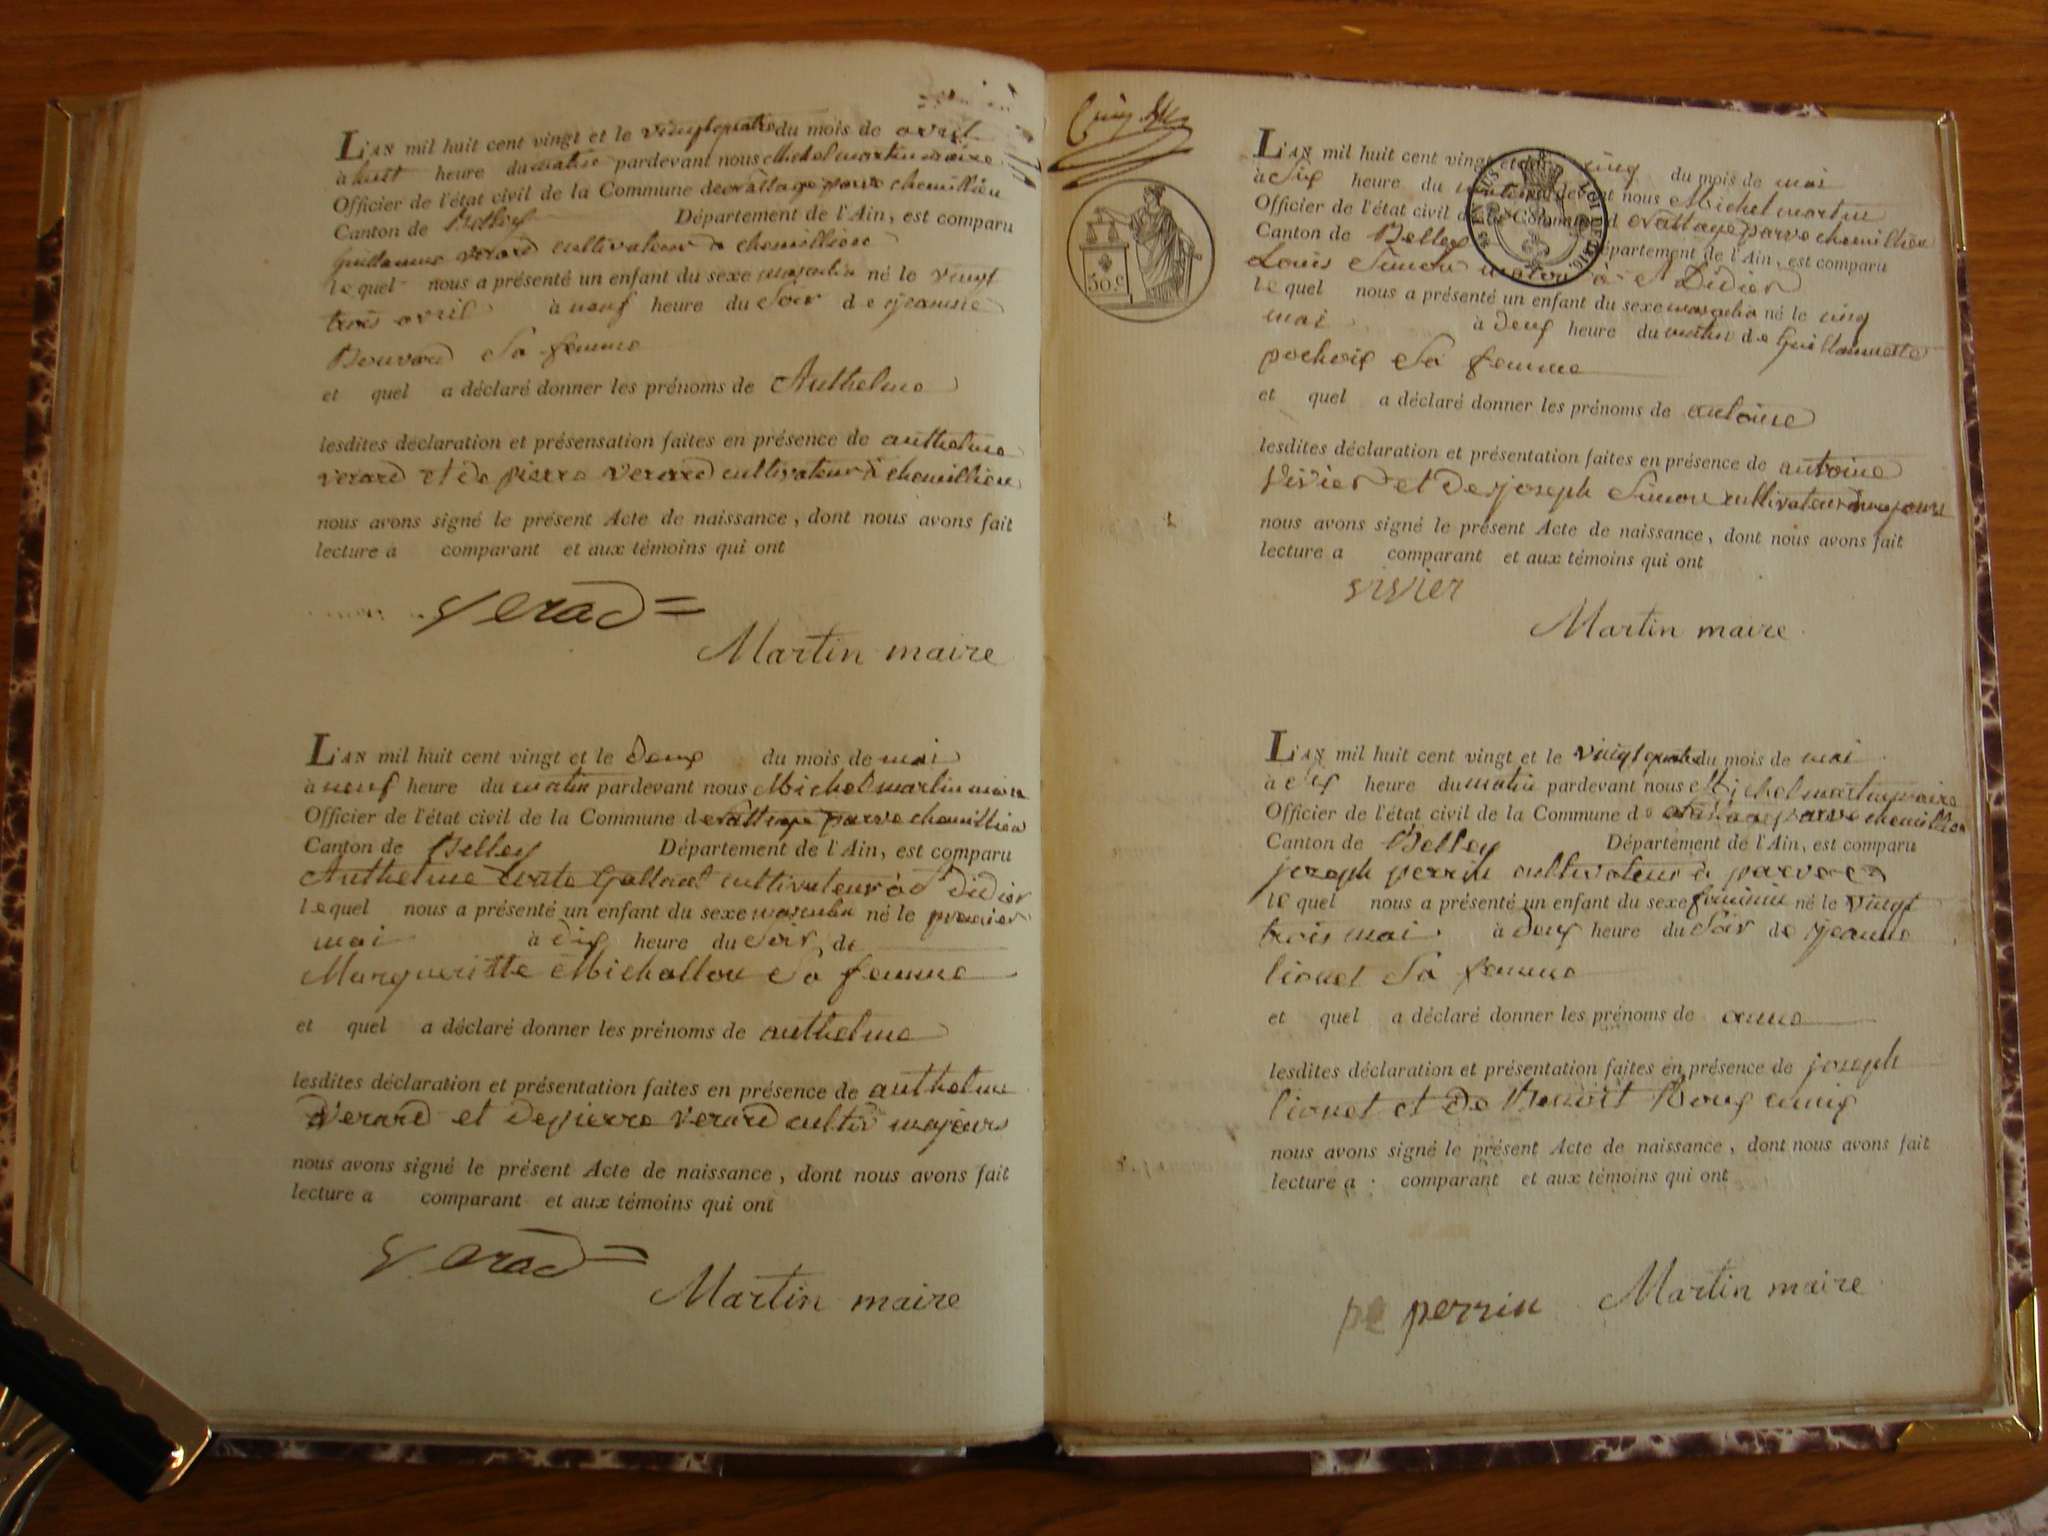 L'AN mil huit cent vingt et le vingtquatre du mois de avril
à huit heure du matin pardevant nous Michel martin maire
Officier de l'état civil de la Commune de parve chemillieu
Canton de Belley Département de l'Ain, est comparu
guillaume verard cultivateur à chemillieu
le quel nous a présenté un enfant du sexe masculin né le vingt
trois avril à neuf heure du Soir de jeanne
Bouvard Sa femme
et quel a déclaré donner les prénoms de Anthelme
lesdites déclaration et présensation faites en présence de anthelme
verard et de pierre verard cultivateur à chemillieu
nous avons signé le présent Acte de naissance, dont nous avons fait
lecture a comparant et aux témoins qui ont
verad
Martin maire
L'AN mil huit cent vingt et le deux du mois de mai
à neuf heure du matin pardevant nous Michel martin maire
Officier de l'état civil de la Commune de parve chemillieu
Canton de Belley Département de l'Ain, est comparu
Anthelme cultivateur à St Didier
le quel nous a présenté un enfant du sexe masculin né le premier
mai à dix heure du Soir de
Margueritte Michallon Sa femme
et quel a déclaré donner les prénoms de anthelme
lesdites déclaration et présentation faites en présence de anthelme
verard et de pierre verard cultiv majeurs
nous avons signé le présent Acte de naissance, dont nous avons fait
lecture a comparant et aux témoins qui ont
verad
Martin maire
Cinq
30 c
LOI DE 1816
L'AN mil huit cent vingt et le cinq du mois de mai
à Six heure du matin pardevant nous Michel martin
Officier de l'état civil de la Commune d parve chemillieu
Canton de Belley Département de l'Ain, est comparu
Louis Simon à St Didier
le quel nous a présenté un enfant du sexe masculin né le cinq
mai à deux heure du matin de Guillaumette
pochoix Sa femme
et quel a déclaré donner les prénoms de antoine
lesdites déclaration et présentation faites en présence de antoine
Vivier et de joseph Simon cultivateur majeurs
nous avons signé le présent Acte de naissance, dont nous avons fait
lecture a comparant et aux témoins qui ont
vivier
Martin maire
L'AN mil huit cent vingt et le vingtquatre du mois de mai
à Six heure du matin pardevant nous Michel martin maire
Officier de l'état civil de la Commune de parve chemillieu
Canton de Belley Département de l'Ain, est comparu
joseph perrin cultivateur à parve
le quel nous a présenté un enfant du sexe feminin né le vingt
trois mai à deux heure du Soir de jeanne
lionet Sa femme
et quel a déclaré donner les prénoms de anne
lesdites déclaration et présentation faites en présence de joseph
lionet et de Benoit
nous avons signé le présent Acte de naissance, dont nous avons fait
lecture a comparant et aux témoins qui ont
pe perrin Martin maire